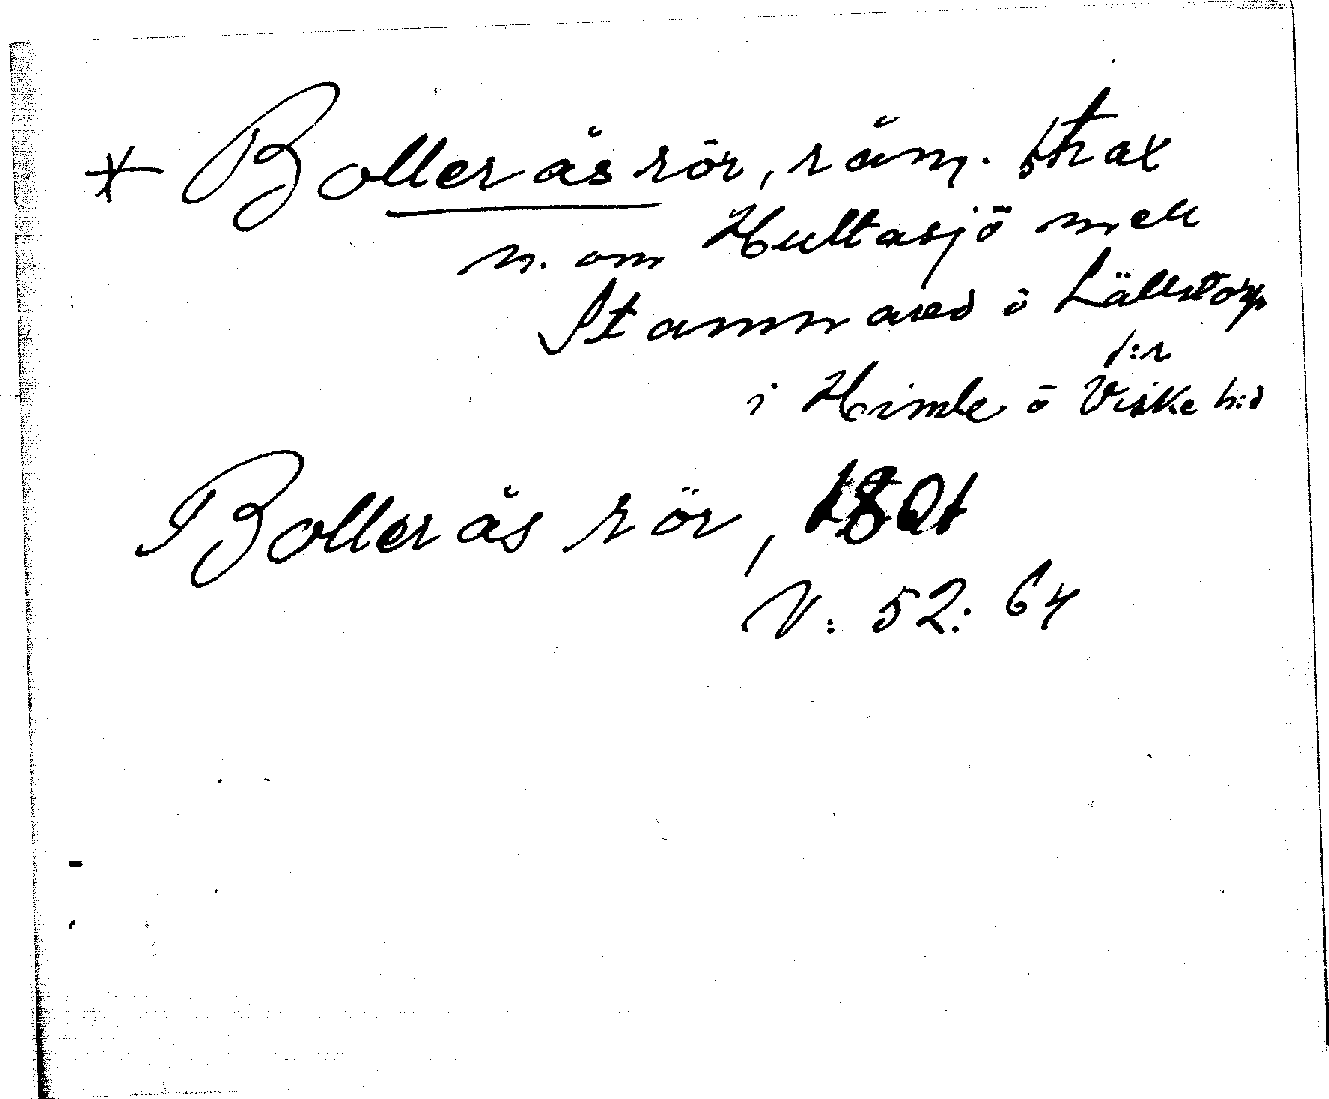 * Bollerås rör, råm. strax
n. om Hultasjö mell
Stamnared o Källstorp
s:r
i Himle o Viske h:d
Bollerås rör, 1801
V: 52: 64